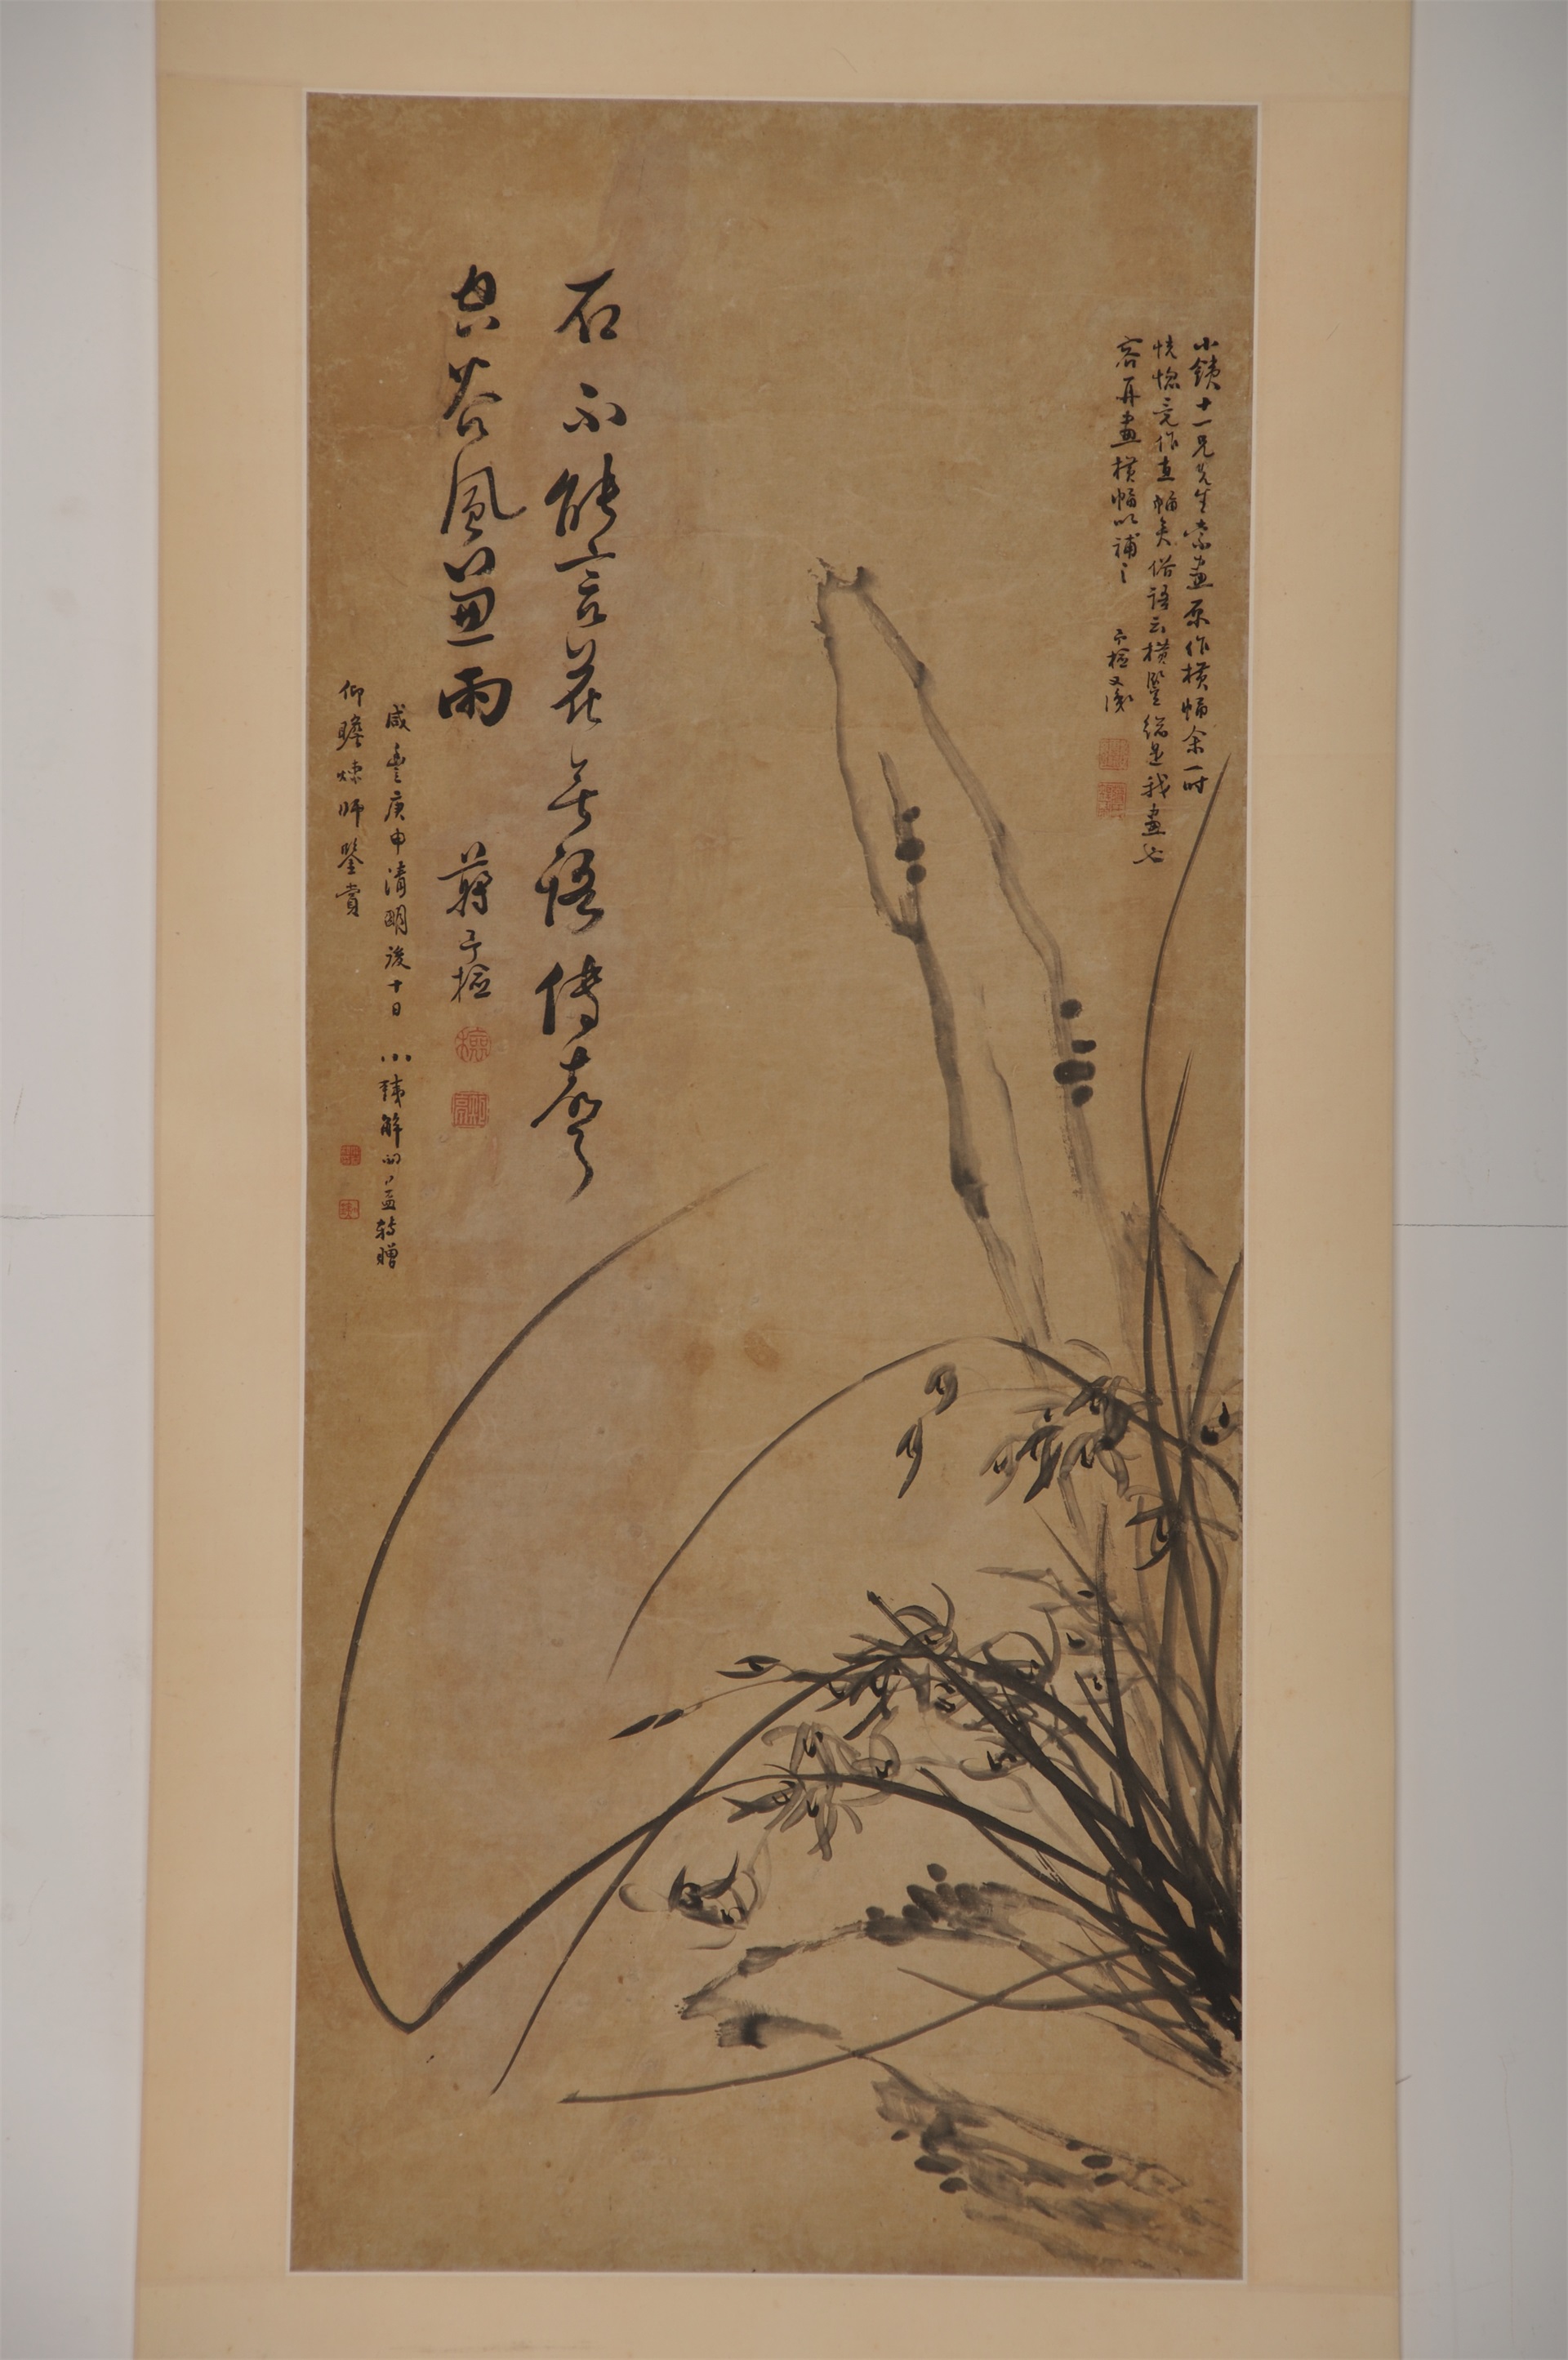 小鐵十一兄先生索畫原作橫幅余一时
恍惚竟作直幅矣俗語云橫豎總是我畫也
容再畫橫幅以補之 予檢又識
石不能言花無語傳聲
空谷風兼雨
蔣予檢
咸豐庚申清明後十日 小鐵解 益轉贈
仰瞻煉師鑒賞